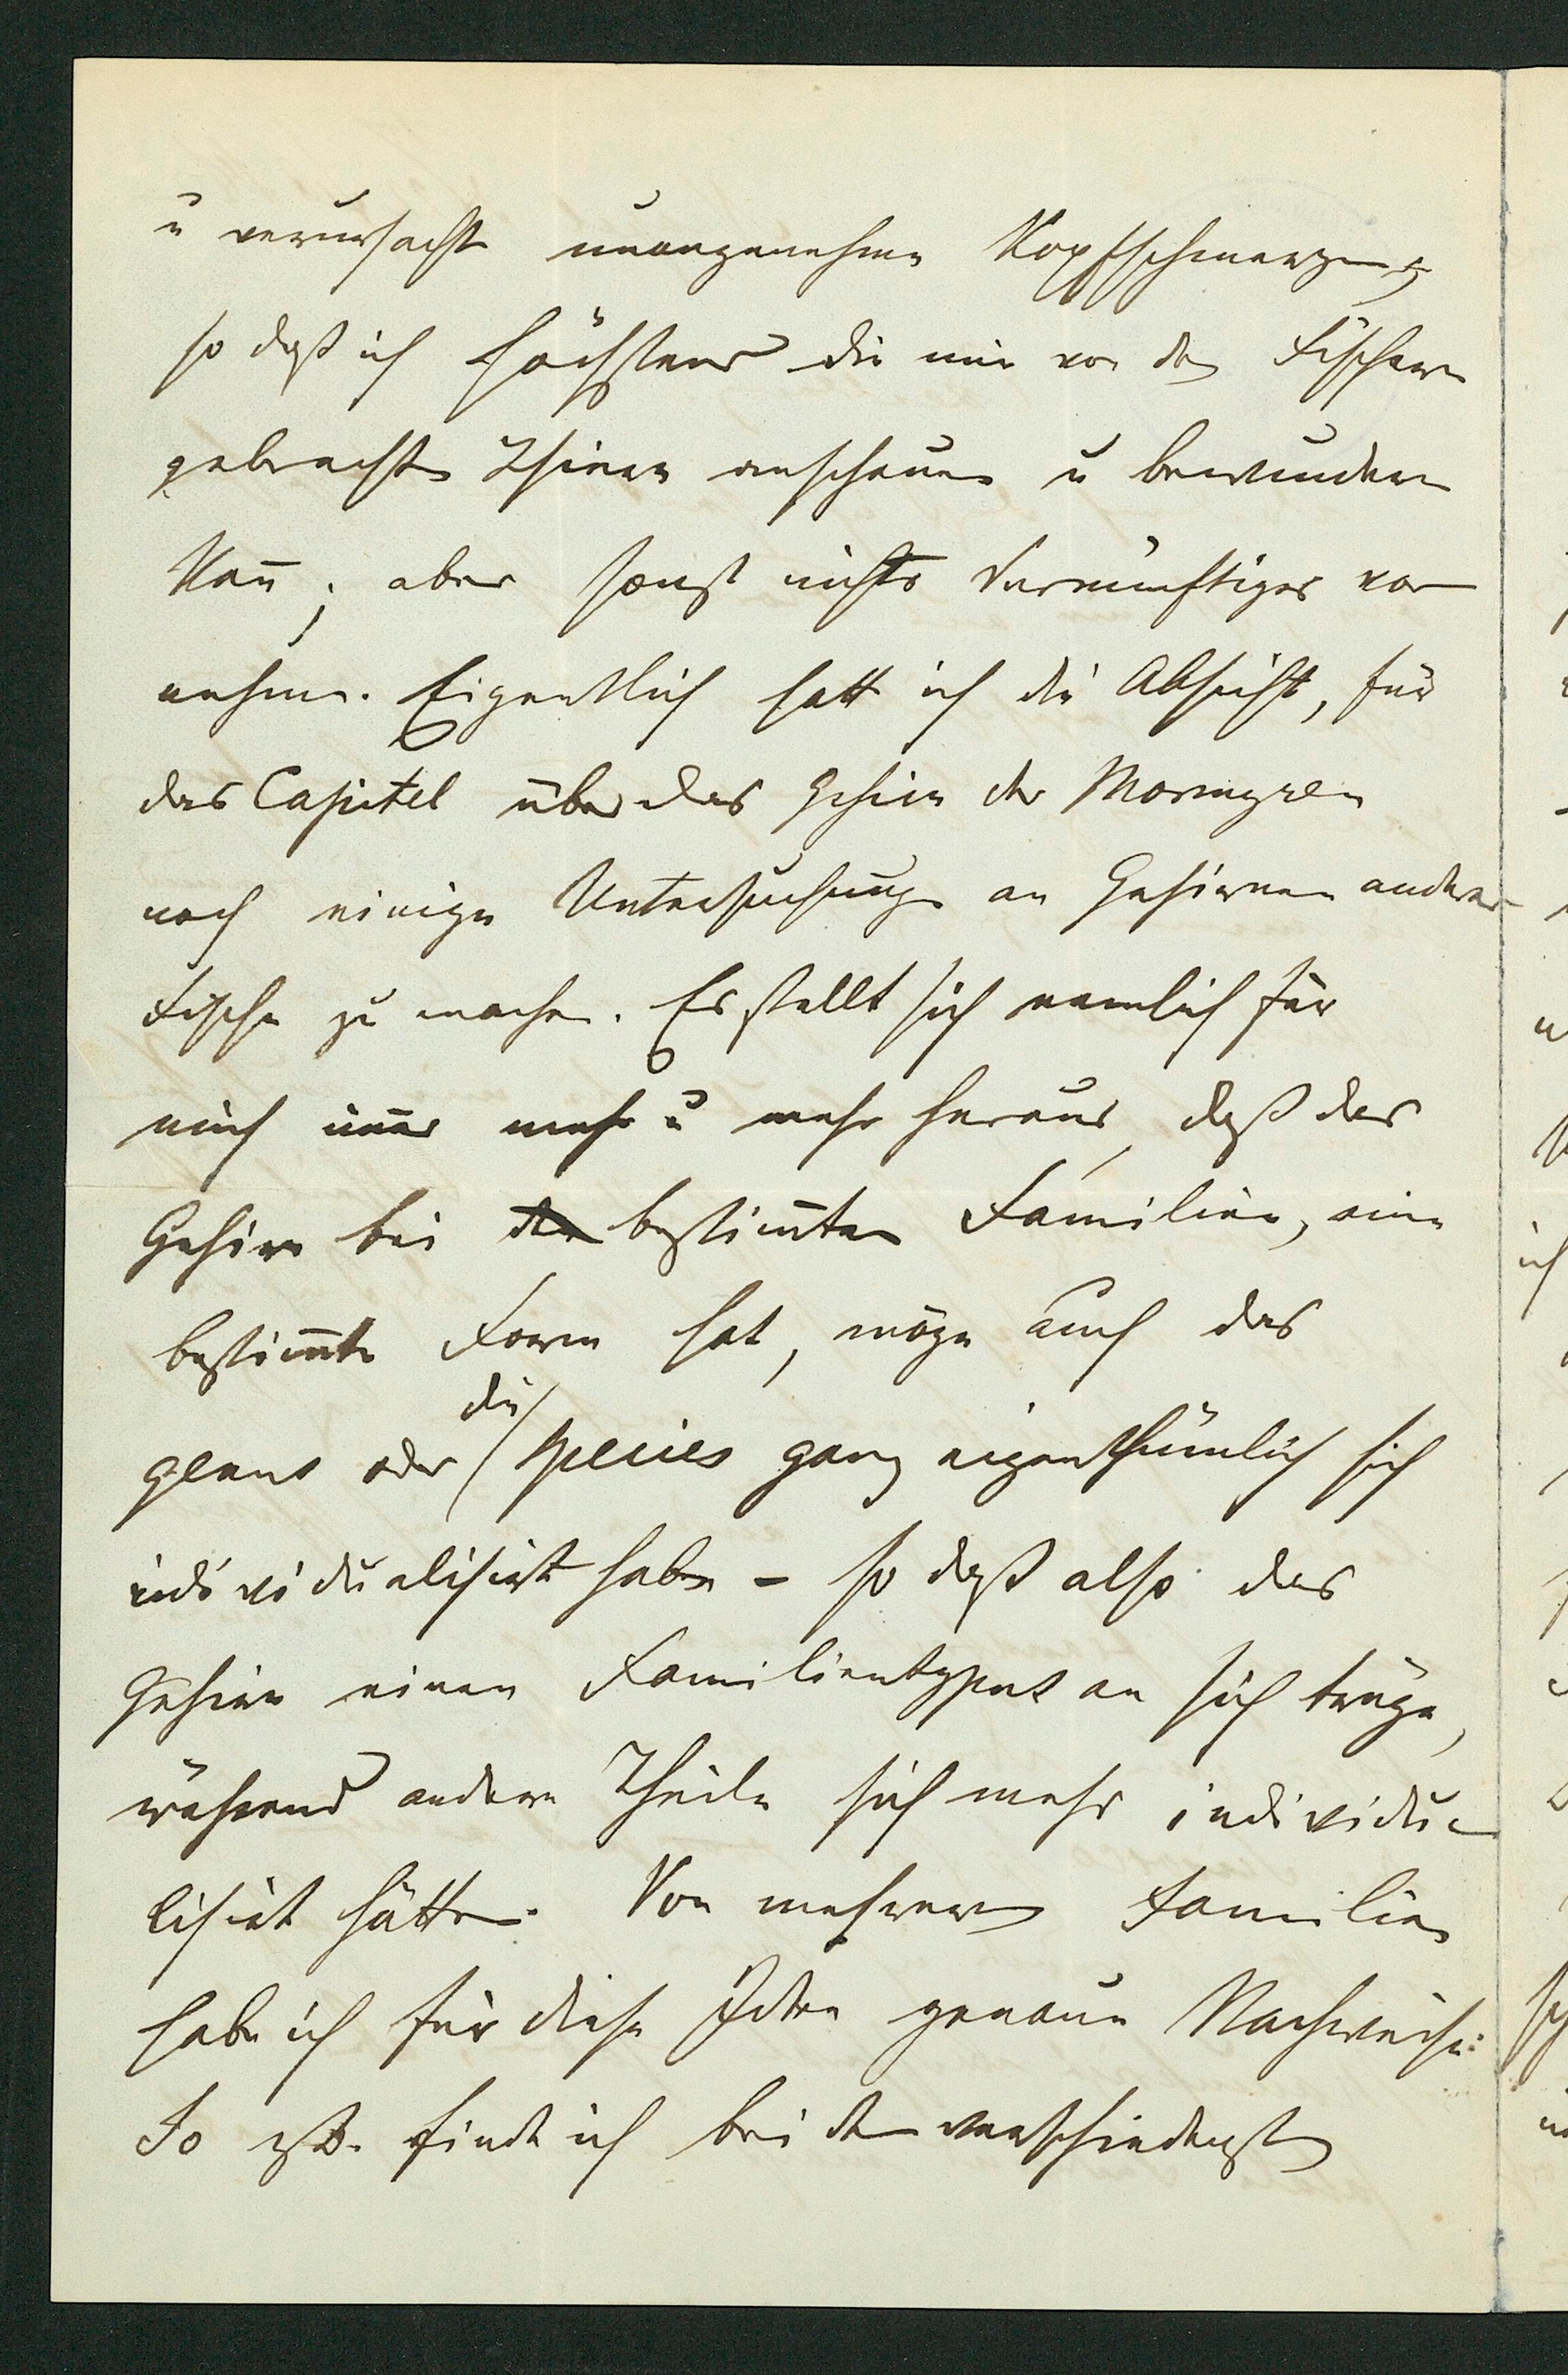 u verursacht unangenehme Kopfschmerzen,
so daß ich höchstens die mir von den Fischern
gebrachten Thiere anschauen u bewundern
kan̄; aber sonst nichts Vernünftiges vor
nehme. Eigentlich hatte ich die Absicht, für
das Capitel über das Gehirn der Mormyren
noch einige Untersuchungen an Gehirnen anderer
Fische zu machen. Es stellt sich nemlich für
mich im̄er mehr u mehr heraus, daß das
Gehirn bei den bestim̄ten Familien, eine
bestim̄te Form hat, möge auch das
die
genus oder species ganz eigenthümlich sich
individualisirt haben – so daß also das
Gehirn einen Familientypus an sich trüge,
während andere Theile sich mehr individua
lisirt hätten. Von mehreren Familien
habe ich für diese Idee genaue Nachweise:
So z.B. finde ich bei den verschiedensten